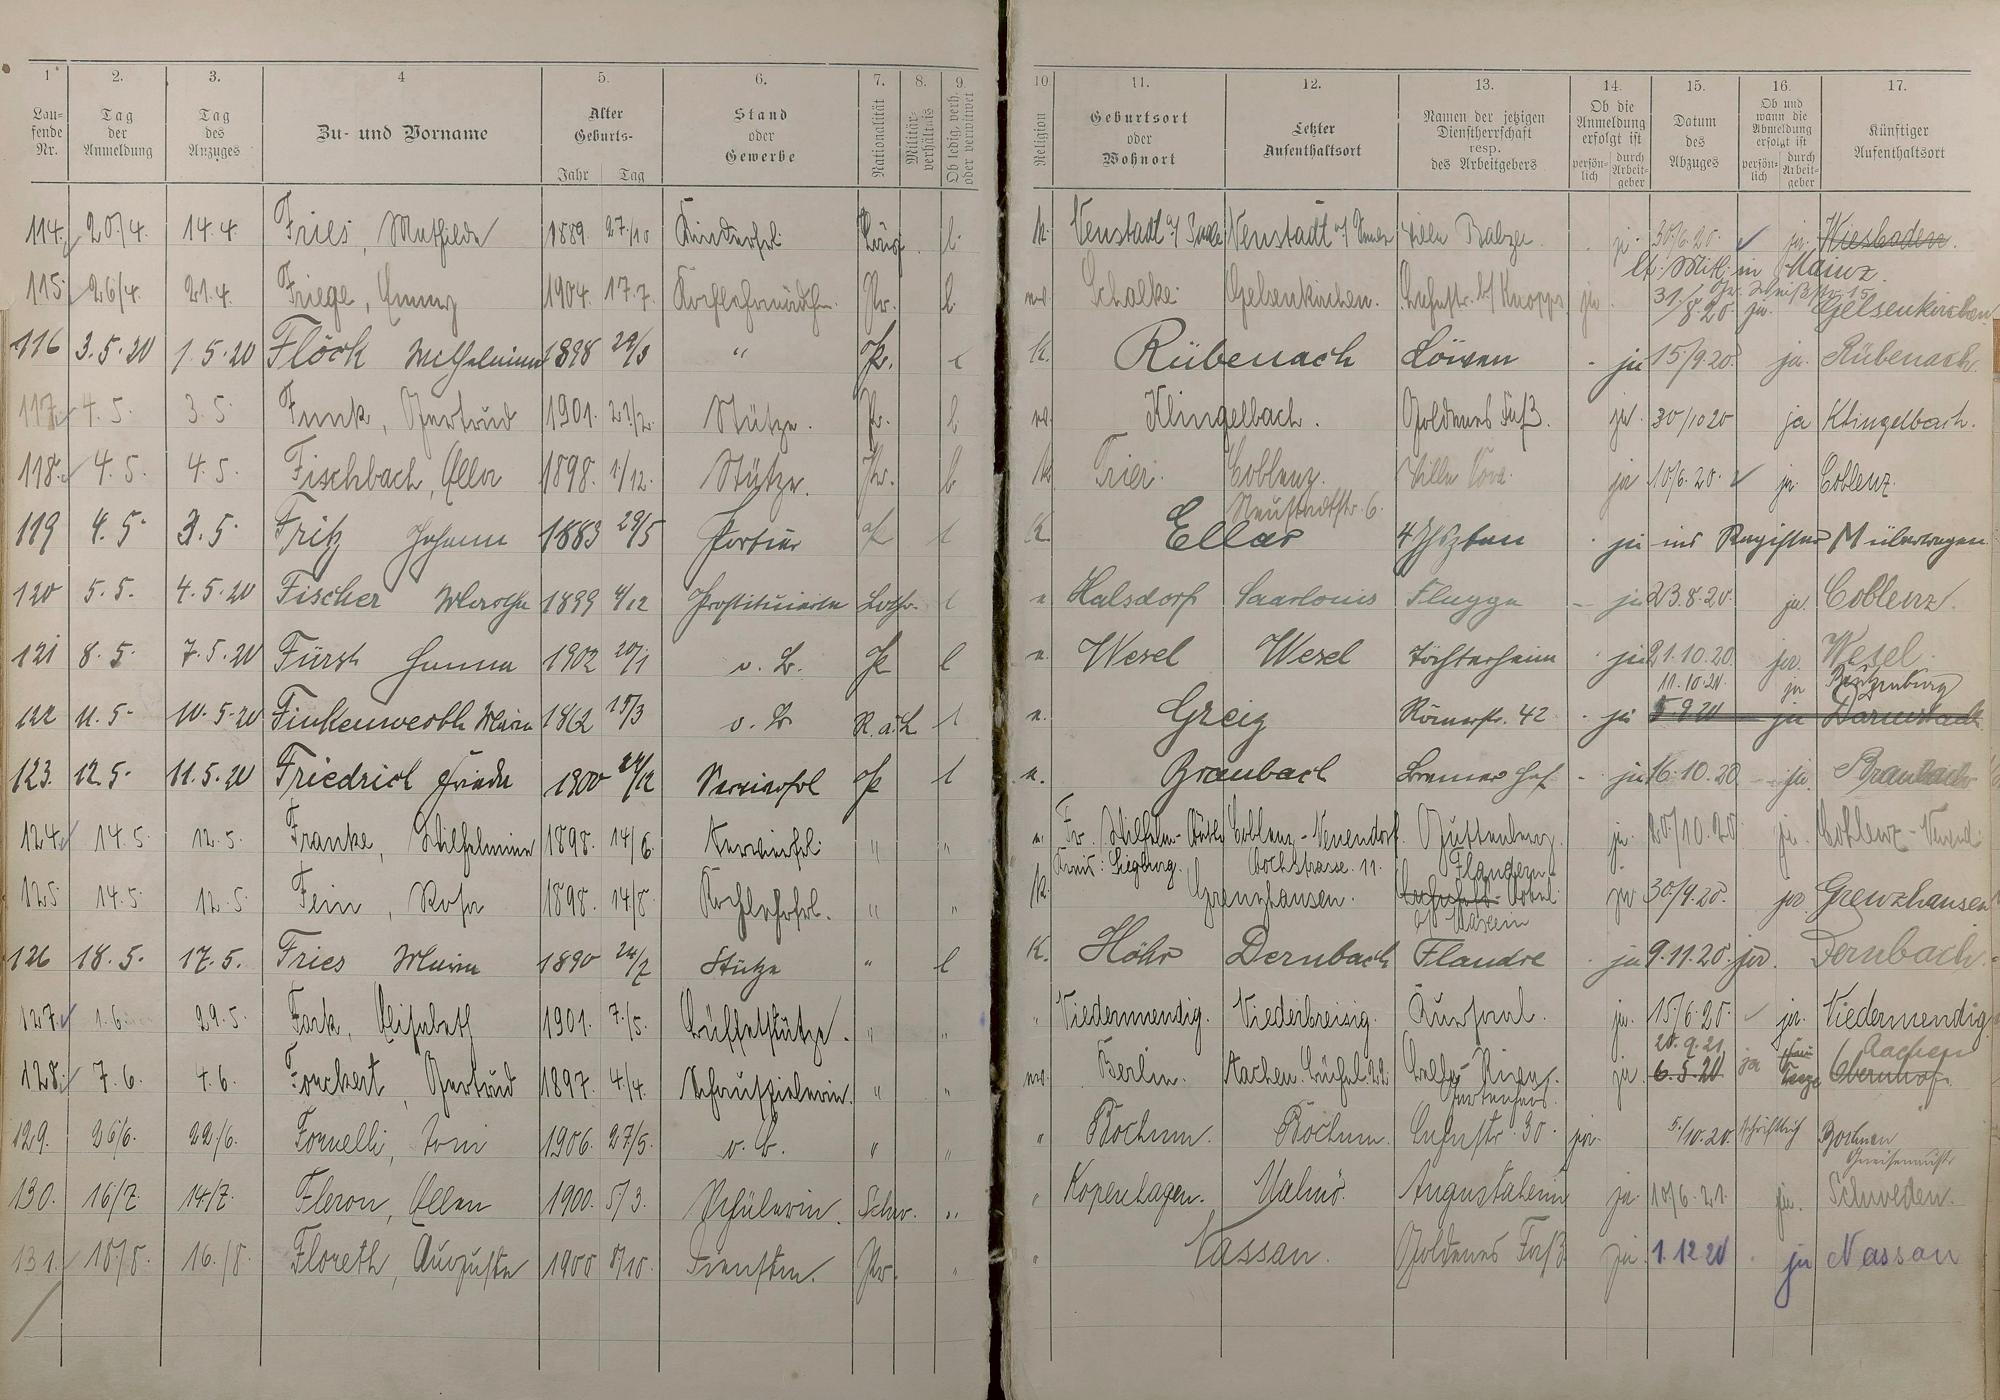 1 2. 3. 4 5. 6. 7. 8. 9. 10 11. 12. 13. 14. 15. 16. 17.
Laufende Nr. Tag der Anmeldung Tag des Anzuges Zu- und Vorname Alter Geburts- Jahr Tag Stand oder Gewerbe Nationalität Militärverhältnis Ob ledig, verh. oder verwitwet Religion Geburtsort oder Wohnort Letzter Aufenthaltsort Namen der jetzigen Dienstherrschaft resp. des Arbeitgebers Ob die Anmeldung erfolgt ist persönlich durch Arbeitgeber Datum des Abzuges Ob und wann die Abmeldung erfolgt ist persönlich durch Arbeitgeber Künftiger Aufenthaltsort
114. 20/4. 14.4. Fries, Mathilde 1889. 27/10 Kinderfrl. l. k. Neustadt a/ Saale Neustadt a/ Villa Balzer ja 30/6.20. ja. Wiesbaden.
lt. Mitt. in Mainz.
115. 26/4. 21.4. Friege, Emmy 1904. 17.7. Kochlehrmädchen Pr. l Schalke Gelsenkirchen. Knopp ja 31./8.20. ja. Gelsenkirchen
116 3.5.20 1.5.20 Flöck Wilhelmine 1898 " Pr. l K. Rübenach Löwen - ja 15/9.20. ja. Rübenach.
117. 4.5. 3.5. Funk, Gertrud 1901. 21/2. Stütze. Pr. l Klingelbach. Goldenes Faß. ja. 30/10 20 ja Klingelbach.
118. 4.5. 4.5. Fischbach, Ella 1898. 1/12. Stütze. Pr. l k Trier. Coblenz. Villa ja 10/6.20. ja. Coblenz.
Neustadtstr. 6.
119 4.5. 3.5. Fritz Johann 1883 29/5 Portier Pr l K. Ellar 4 Jhrzten ja ins Register M übertragen
120 5.5. 4.5.20 Fischer 1899 4/12 Prostituierte Lothr. l Halsdorf Saarlouis Flugge - ja 23.8.20. ja. Coblenz.
121 8.5. 7.5.20 Fürst Hanna 1902 20/1 o. B. Pr l Wesel Wesel Töchterheim ja 21.10.20. ja. Wesel.
11.10.20. ja
122 11.5. 10.5.20 Finkenwerth Maria 1862 19/3 o. B l Greiz Römerstr. 42 - ja 5.9 20 ja Darmstadt
123. 12.5. 11.5.20 Friedrich Frieda 1900 Servierfrl Pr l Braubach Bremer Hof - ja 16.10.20. ja. Braubach
124. 14.5. 12.5. Franke, Wilhelmine 1898. 14/6 Servierfrl. " " Coblenz-Neuendorf. Guttenberg. ja. 20/10.20 ja. Coblenz-Neuend.
Kreis: Siegburg. Hochstrasse. 11. Flandern
125. 14.5. 12.5. Fein, Rosa 1898. 14/8. Kochlehrfrl. " " K. Grenzhausen. Hotel ja 30/9.20. ja. Grenzhausen
126 18.5. 17.5. Fries Maria 1890 24/2 Stütze " l K. Höhr Dernbach Flandre - ja 9.11.20. ja. Dernbach.
127. 1.6. 29.5. Fark, Elisabeth 1901. 7/5. Büffetstütze. " " Niedermendig. Niederbreisig. Kursaal. ja. 15/6.20. ja. Niedermendig
20.9.21. Aachen
128. 7.6. 4.6. Fonckert, Gertrud 1897. 4/4. Schauspielerin. " " Berlin. Aachen. Büchel. 22. ja. 6.5.20 ja Obernhof.
129. 26/6. 22/6. Fornelli, Toni 1906. 27/5. o. B. " " " Bochum. Bochum. 30. ja. 5./10.20. schriftlich Bochum
Gneisenaustr
130. 16/7. 14/7. Fleron, Ellen 1900. 5/3. Schülerin. Schw. " " Kopenhagen. Malmö. Augustaheim ja. 10/6.21. ja. Schweden.
131. 18/8. 16./8. Floreth, Auguste 1900 8/10. Dienstm. Pr. " " Nassau. Goldenes Faß ja. 1.12 20 ja Nassau